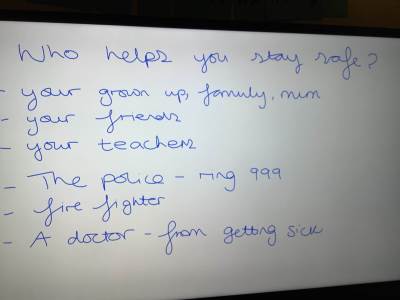 Who helps you stay safe?
- your grown up, family, mum
- your friends
- your teachers
- The police - ring 999
- fire fighter
- A doctor - from getting sick